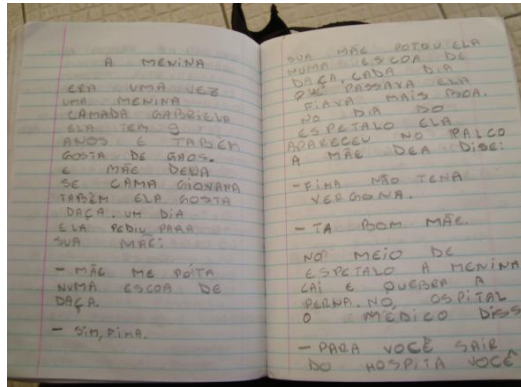 A MENINA
ERA UMA VEZ
UMA MENINA
CAMADA GABRIELA
ELA TEM 9
ANOS E TABÉM
GOSTA DE GAOS.
E MÃE DENA
SE CAMA GIOVANA
TABÉM ELA GOSTA
DAÇA. UM DIA
ELA PEDIU PARA
SUA MÃE:
- MÃE ME POITA
NUMA ESCOA DE
DAÇA.
- SIM, FIMA.
SUA MÃE POTOU ELA
NUMA ESCOA DE
DAÇA. CADA DIA
QUE PASSAVA ELA
FIAVA MAIS BOA.
NO DIA DO
ESPETALO ELA
APARECEU NO PALCO
A MÃE DEA DISE:
- FIMA NÃO TENA
VERGONA.
- TA BOM MÃE.
NO MEIO DE
ESPETALO A MENINA
CAI E QUEBRA A
PERNA. NO, OSPITAL
O MÉDICO DISS
- PARA VOCÊ SAIR
DO HOSPITA VOCÊ